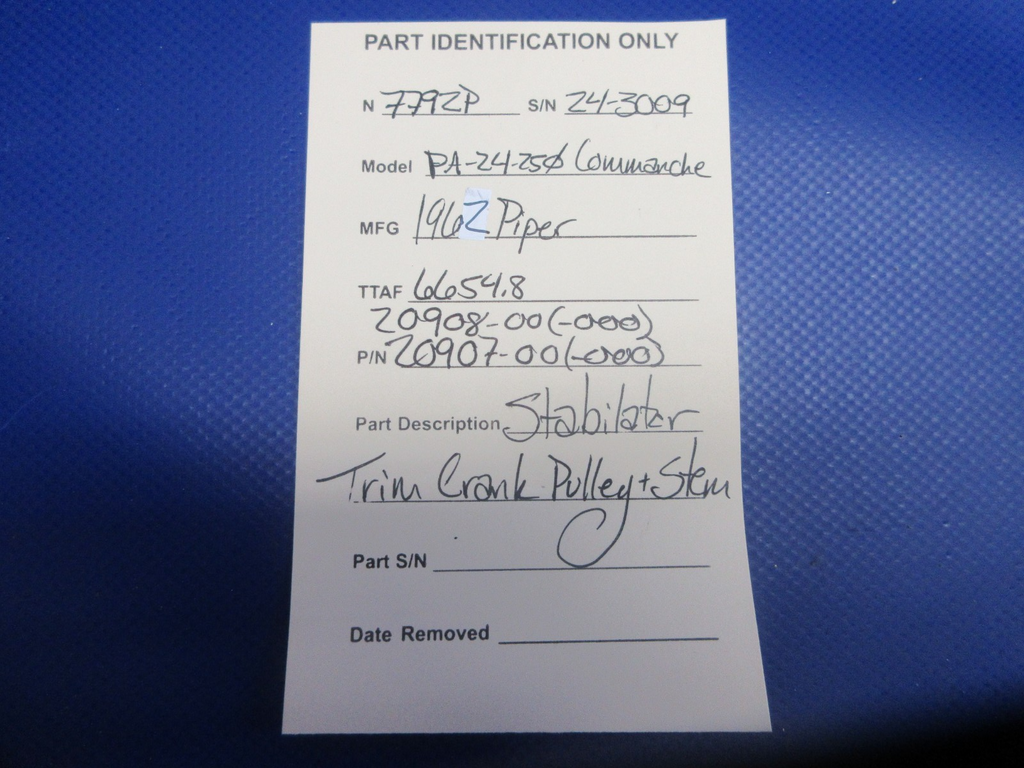 PART IDENTIFICATION ONLY
N 7792P S/N 24-3009
Model PA-24-250 Commanche
MFG 1962 Piper
TTAF 6654.8
20908-00(-000)
P/N 20907-00(-000)
Part Description Stabilator
Trim Crank Pulley + Stem
Part S/N
Date Removed